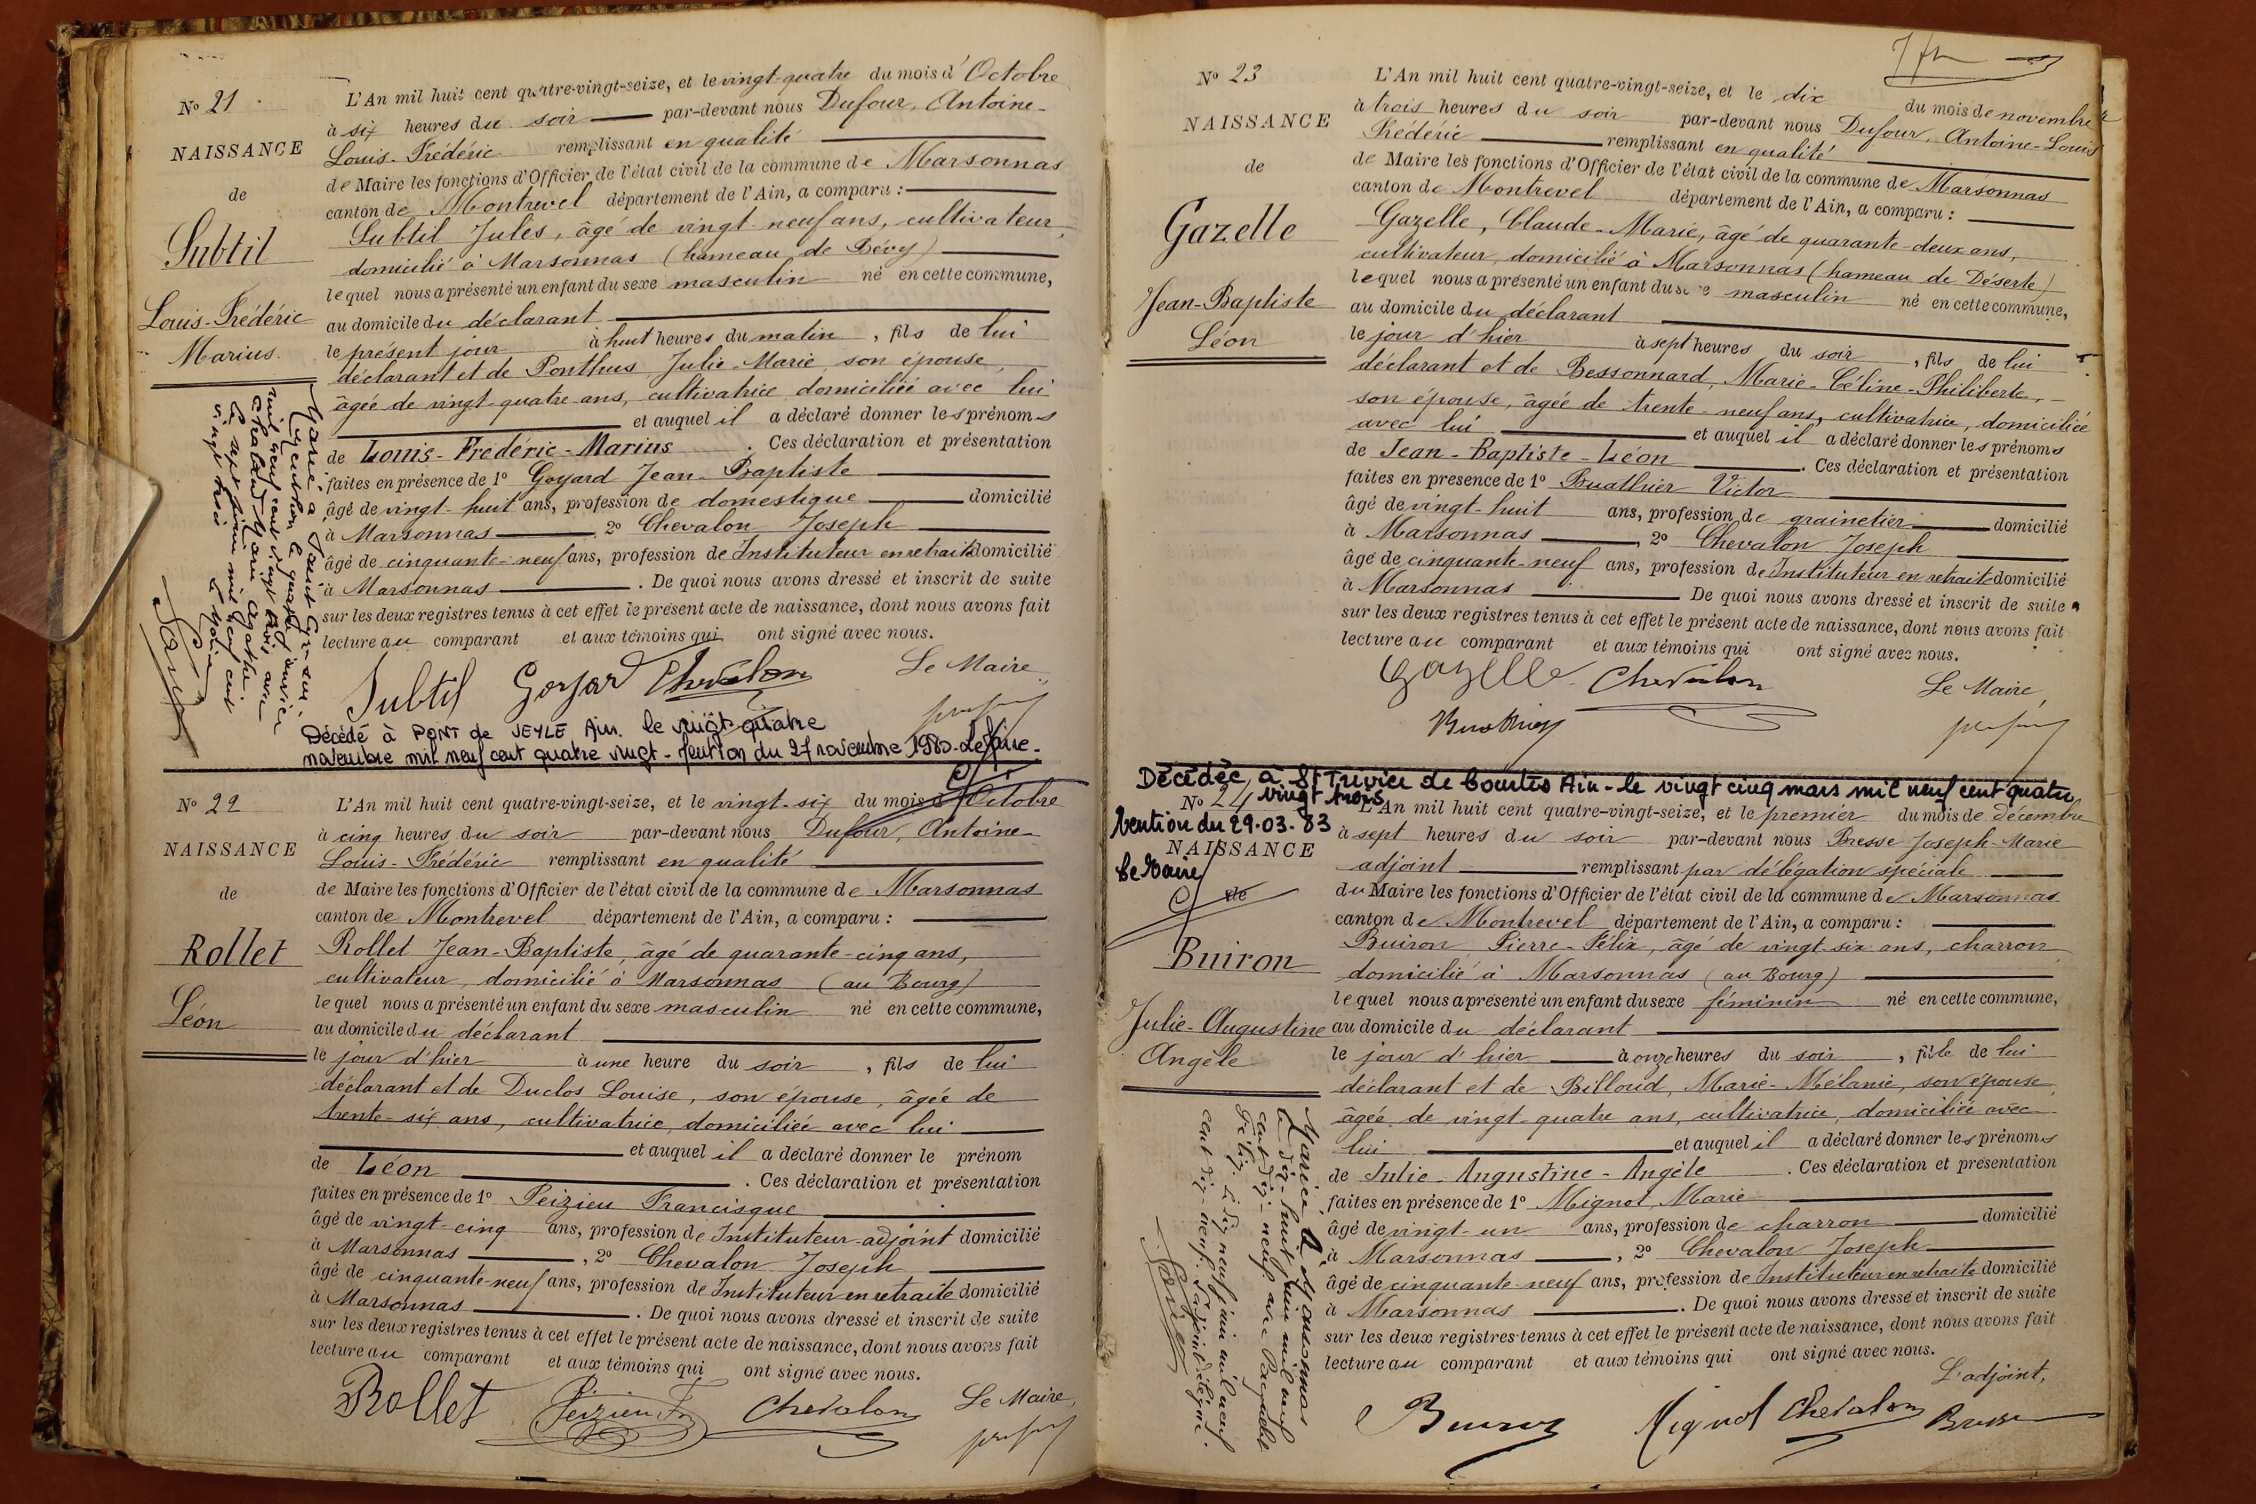 N° 21
NAISSANCE
de
Subtil
Louis-Frédéric
Marius.
L'An mil huit cent quatre-vingt-seize, et le vingt-quatre du mois d'Octobre
à six heures du soir par-devant nous Dufour, Antoine-
Louis-Frédéric remplissant en qualité
de Maire les fonctions d'Officier de l'état civil de la commune de Marsonnas
canton de Montrevel département de l'Ain, a comparu :
Subtil Jules, âgé de vingt-neuf ans, cultivateur,
domicilié à Marsonnas (hameau de Bévy)
lequel nous a présenté un enfant du sexe masculin né en cette commune,
au domicile du déclarant
le présent jour à huit heures du matin, fils de lui
déclarant et de Ponthus Julie-Marie, son épouse,
âgée de vingt-quatre ans, cultivatrice, domiciliée avec lui
et auquel il a déclaré donner les prénoms
de Louis-Frédéric-Marius. Ces déclaration et présentation
faites en présence de 1° Goyard Jean-Baptiste
âgé de vingt-huit ans, profession de domestique domicilié
à Marsonnas, 2° Chevalon Joseph
âgé de cinquante-neuf ans, profession de Instituteur en retraite domicilié
à Marsonnas. De quoi nous avons dressé et inscrit de suite
sur les deux registres tenus à cet effet le présent acte de naissance, dont nous avons fait
lecture au comparant et aux témoins qui ont signé avec nous.
Le Maire,
Subtil Goyard Chevalon
Marié à Saint Cyr sur
Menthon le quatre janvier
mil neuf cent vingt trois avec
Chaland Marie Agathe.
Le sept janvier mil neuf cent
vingt trois Le Maire
Décédé à PONT de VEYLE Ain. le vingt-quatre
novembre mil neuf cent quatre vingt - Mention du 27 novembre 1980 - Le Maire -
N° 22
NAISSANCE
de
Rollet
Léon
L'An mil huit cent quatre-vingt-seize, et le vingt-six du mois d'Octobre
à cinq heures du soir par-devant nous Dufour, Antoine-
Louis-Frédéric remplissant en qualité
de Maire les fonctions d'Officier de l'état civil de la commune de Marsonnas
canton de Montrevel département de l'Ain, a comparu :
Rollet Jean-Baptiste, âgé de quarante-cinq ans,
cultivateur, domicilié à Marsonnas (au Bourg)
lequel nous a présenté un enfant du sexe masculin né en cette commune,
au domicile du déclarant
le jour d'hier à une heure du soir, fils de lui
déclarant et de Duclos Louise, son épouse, âgée de
trente-six ans, cultivatrice, domiciliée avec lui
et auquel il a déclaré donner le prénom
de Léon. Ces déclaration et présentation
faites en présence de 1° Peizieu Francisque
âgé de vingt-cinq ans, profession de Instituteur-adjoint domicilié
à Marsonnas, 2° Chevalon Joseph
âgé de cinquante-neuf ans, profession de Instituteur en retraite domicilié
à Marsonnas. De quoi nous avons dressé et inscrit de suite
sur les deux registres tenus à cet effet le présent acte de naissance, dont nous avons fait
lecture au comparant et aux témoins qui ont signé avec nous.
Le Maire,
Rollet Peizieu Fr Chevalon
N° 23
NAISSANCE
de
Gazelle
Jean-Baptiste
Léon
L'An mil huit cent quatre-vingt-seize, et le dix du mois de novembre
à trois heures du soir par-devant nous Dufour, Antoine-Louis
Frédéric remplissant en qualité
de Maire les fonctions d'Officier de l'état civil de la commune de Marsonnas
canton de Montrevel département de l'Ain, a comparu :
Gazelle, Claude-Marie, âgé de quarante-deux ans,
cultivateur, domicilié à Marsonnas (hameau de Déserte)
lequel nous a présenté un enfant du sexe masculin né en cette commune,
au domicile du déclarant
le jour d'hier à sept heures du soir, fils de lui
déclarant et de Bessonnard, Marie-Céline-Philiberte,
son épouse, âgée de trente-neuf ans, cultivatrice, domiciliée
avec lui et auquel il a déclaré donner les prénoms
de Jean-Baptiste-Léon. Ces déclaration et présentation
faites en présence de 1° Buathier Victor
âgé de vingt-huit ans, profession de grainetier domicilié
à Marsonnas, 2° Chevalon Joseph
âgé de cinquante-neuf ans, profession de Instituteur en retraite domicilié
à Marsonnas De quoi nous avons dressé et inscrit de suite
sur les deux registres tenus à cet effet le présent acte de naissance, dont nous avons fait
lecture au comparant et aux témoins qui ont signé avec nous.
Gazelle Chevalon Le Maire,
Buathier
Décédée à St Trivier de Courtes Ain - le vingt cinq mars mil neuf cent quatre
vingt trois
Mention du 29.03.83
Le Maire
N° 24
NAISSANCE
de
Buiron
Julie-Augustine
Angèle
L'An mil huit cent quatre-vingt-seize, et le premier du mois de décembre
à sept heures du soir par-devant nous Bresse Joseph-Marie
adjoint remplissant par délégation spéciale
du Maire les fonctions d'Officier de l'état civil de la commune de Marsonnas
canton de Montrevel département de l'Ain, a comparu :
Buiron Pierre-Félix, âgé de vingt-six ans, charron,
domicilié à Marsonnas (au Bourg)
lequel nous a présenté un enfant du sexe féminin né en cette commune,
au domicile du déclarant
le jour d'hier à onze heures du soir, fille de lui
déclarant et de Billoud, Marie-Mélanie, son épouse,
âgée de vingt-quatre ans, cultivatrice, domiciliée avec
lui et auquel il a déclaré donner les prénoms
de Julie-Augustine-Angèle. Ces déclaration et présentation
faites en présence de 1° Mignot Marie
âgé de vingt-un ans, profession de charron domicilié
à Marsonnas, 2° Chevalon Joseph
âgé de cinquante-neuf ans, profession de Instituteur en retraite domicilié
à Marsonnas. De quoi nous avons dressé et inscrit de suite
sur les deux registres tenus à cet effet le présent acte de naissance, dont nous avons fait
lecture au comparant et aux témoins qui ont signé avec nous.
L'adjoint,
Buiron Mignot Chevalon Bresse
Mariée à Marsonnas
le dix-huit juin mil neuf
cent dix-neuf avec
Le dix neuf juin mil neuf
cent dix neuf. L'adjoint délégué.